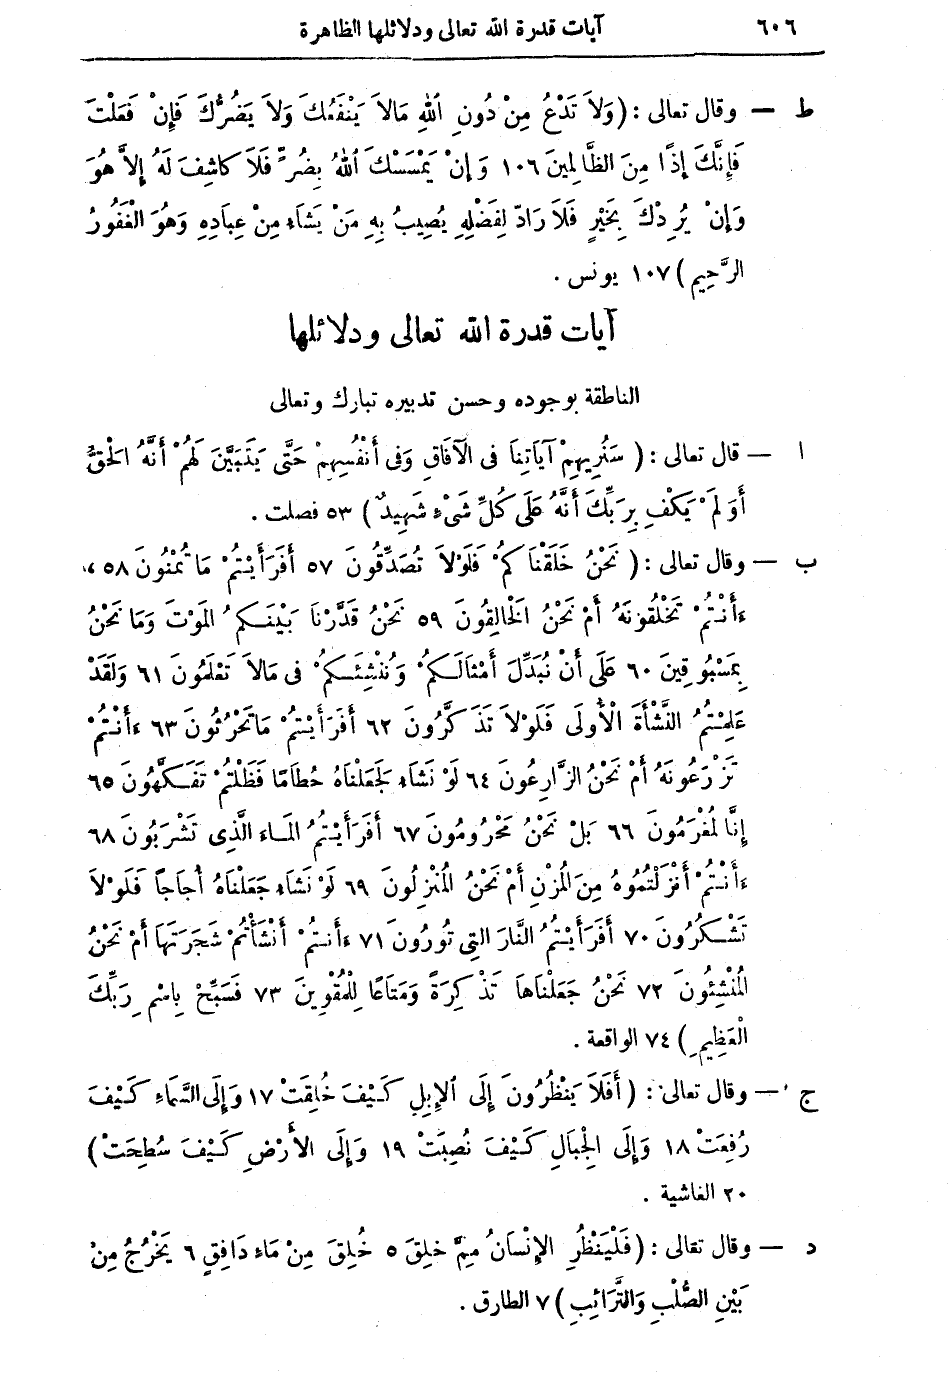 ٦٠٦ آيات قدرة الله تعالى ودلائلها الظاهرة
ط — وقال تعالى : ( وَلاَ تَدْعُ مِنْ دُونِ اللهِ مَالاَ يَنْفَعُكَ وَلاَ يَضُرُّكَ فَإِنْ فَعَلْتَ
فَإِنَّكَ إِذًا مِنَ الظَّالمِينَ ١٠٦ وَإِنْ يَمْسَسْكَ اللهُ بِضُرٍّ فَلاَ كاشِفَ لَهُ إِلاَّ هُوَ
وَإِنْ يُرِدْكَ بِخَيْرٍ فَلاَ رَادَّ لِفَضْلِهِ يُصِيبُ بِهِ مَنْ يَشَاءِ مِنْ عِبَادِهِ وَهُوَ الْغَفُورُ
الرَّحِيم ) ١٠٧ يونس .
آيات قدرة الله تعالى ودلائلها
الناطقة بوجوده وحسن تدبيره تبارك وتعالى
ا — قال تعالى : ( سَنُرِيهِمْ آيَاتِنَا فى الْآفَاقِ وَفى أَنْفُسِهِمْ حَتَّى يَتَبَيَّنَ لَهُمْ أَنَّهُ الْحَقُّ
أَوَلَمْ يَكْفِ بِرَبِّكَ أَنَّهُ عَلَى كُلِّ شَىْءٍ شَهِيدٌ ) ٥٣ فصلت .
ب — وقال تعالى : ( نَحْنُ خَلَقْنَاكُمْ فَلَوْلاَ تُصَدِّقُونَ ٥٧ أَفَرَأَيْتُمْ مَا تُمْنُونَ ٥٨
ءَأَنْتُمْ تَخْلُقُونَهُ أَمْ نَحْنُ الْخَالِقُونَ ٥٩ نَحْنُ قَدَّرْنَا بَيْنَكُمُ المَوْتَ وَمَا نَحْنُ
بِمَسْبُوقِينَ ٦٠ عَلَى أَنْ نُبَدِّلَ أَمْثَالَكُمْ وَنُنْشِئَكُمْ فى مَالاَ تَعْلَمُونَ ٦١ وَلَقَدْ
عَلِمْتُمُ النَّشْأَةَ الْأُولَى فَلَوْلاَ تَذَكَّرُونَ ٦٢ أَفَرَأَيْتُمْ مَا تَحْرُثُونَ ٦٣ ءَأَنْتُمْ
تَزْرَعُونَهُ أَمْ نَحْنُ الزَّارِعُونَ ٦٤ لَوْ نَشَاءِ لَجَعَلْنَاهُ حُطَامًا فَظَلْتُمْ تَفَكَّهُونَ ٦٥
إِنَّا لَمُغْرَمُونَ ٦٦ بَلْ نَحْنُ مَحْرُومُونَ ٦٧ أَفَرَأَيْتُمُ المَاءَ الَّذِى تَشْرَبُونَ ٦٨
ءَأَنْتُمْ أَنْزَلْتُمُوهُ مِنَ المُزْنِ أَمْ نَحْنُ المُنْزِلُونَ ٦٩ لَوْ نَشَاءِ جَعَلْنَاهُ أُجَاجاً فَلَوْلاَ
تَشْكُرُونَ ٧٠ أَفَرَأَيْتُمُ النَّارَ التِى تُورُونَ ٧١ ءَأَنتُمْ أَنْشَأْتُمْ شَجَرَتَهَا أَمْ نَحْنُ
المُنْشِئُونَ ٧٢ نَحْنُ جَعَلْنَاهَا تَذْكِرَةً وَمَتَاعًا لِلْمُقْوِينَ ٧٣ فَسَبِّحْ بِاسْمِ رَبِّكَ
الْعَظِيمِ ) ٧٤ الواقعة .
ج — وقال تعالى : ( أَفَلاَ يَنْظُرُونَ إِلَى الإِبِلِ كَيْفَ خُلِقَتْ ١٧ وَإِلَى السَّمَاءِ كَيْفَ
رُفِعَتْ ١٨ وَإِلَى الْجِبَالِ كَيْفَ نُصِبَتْ ١٩ وَإِلَى الأَرْضِ كَيْفَ سُطِحَتْ )
٢٠ الغاشية .
د — وقال تعالى : ( فَلْيَنْظُرِ الإِنْسَانُ مِمَّ خلِقَ ٥ خُلِقَ مِنْ مَاءِ دَافِقٍ ٦ يَخْرُجُ مِنْ
بَيْنِ الصُّلْبِ وَالتَّرَائِبِ ) ٧ الطارق .